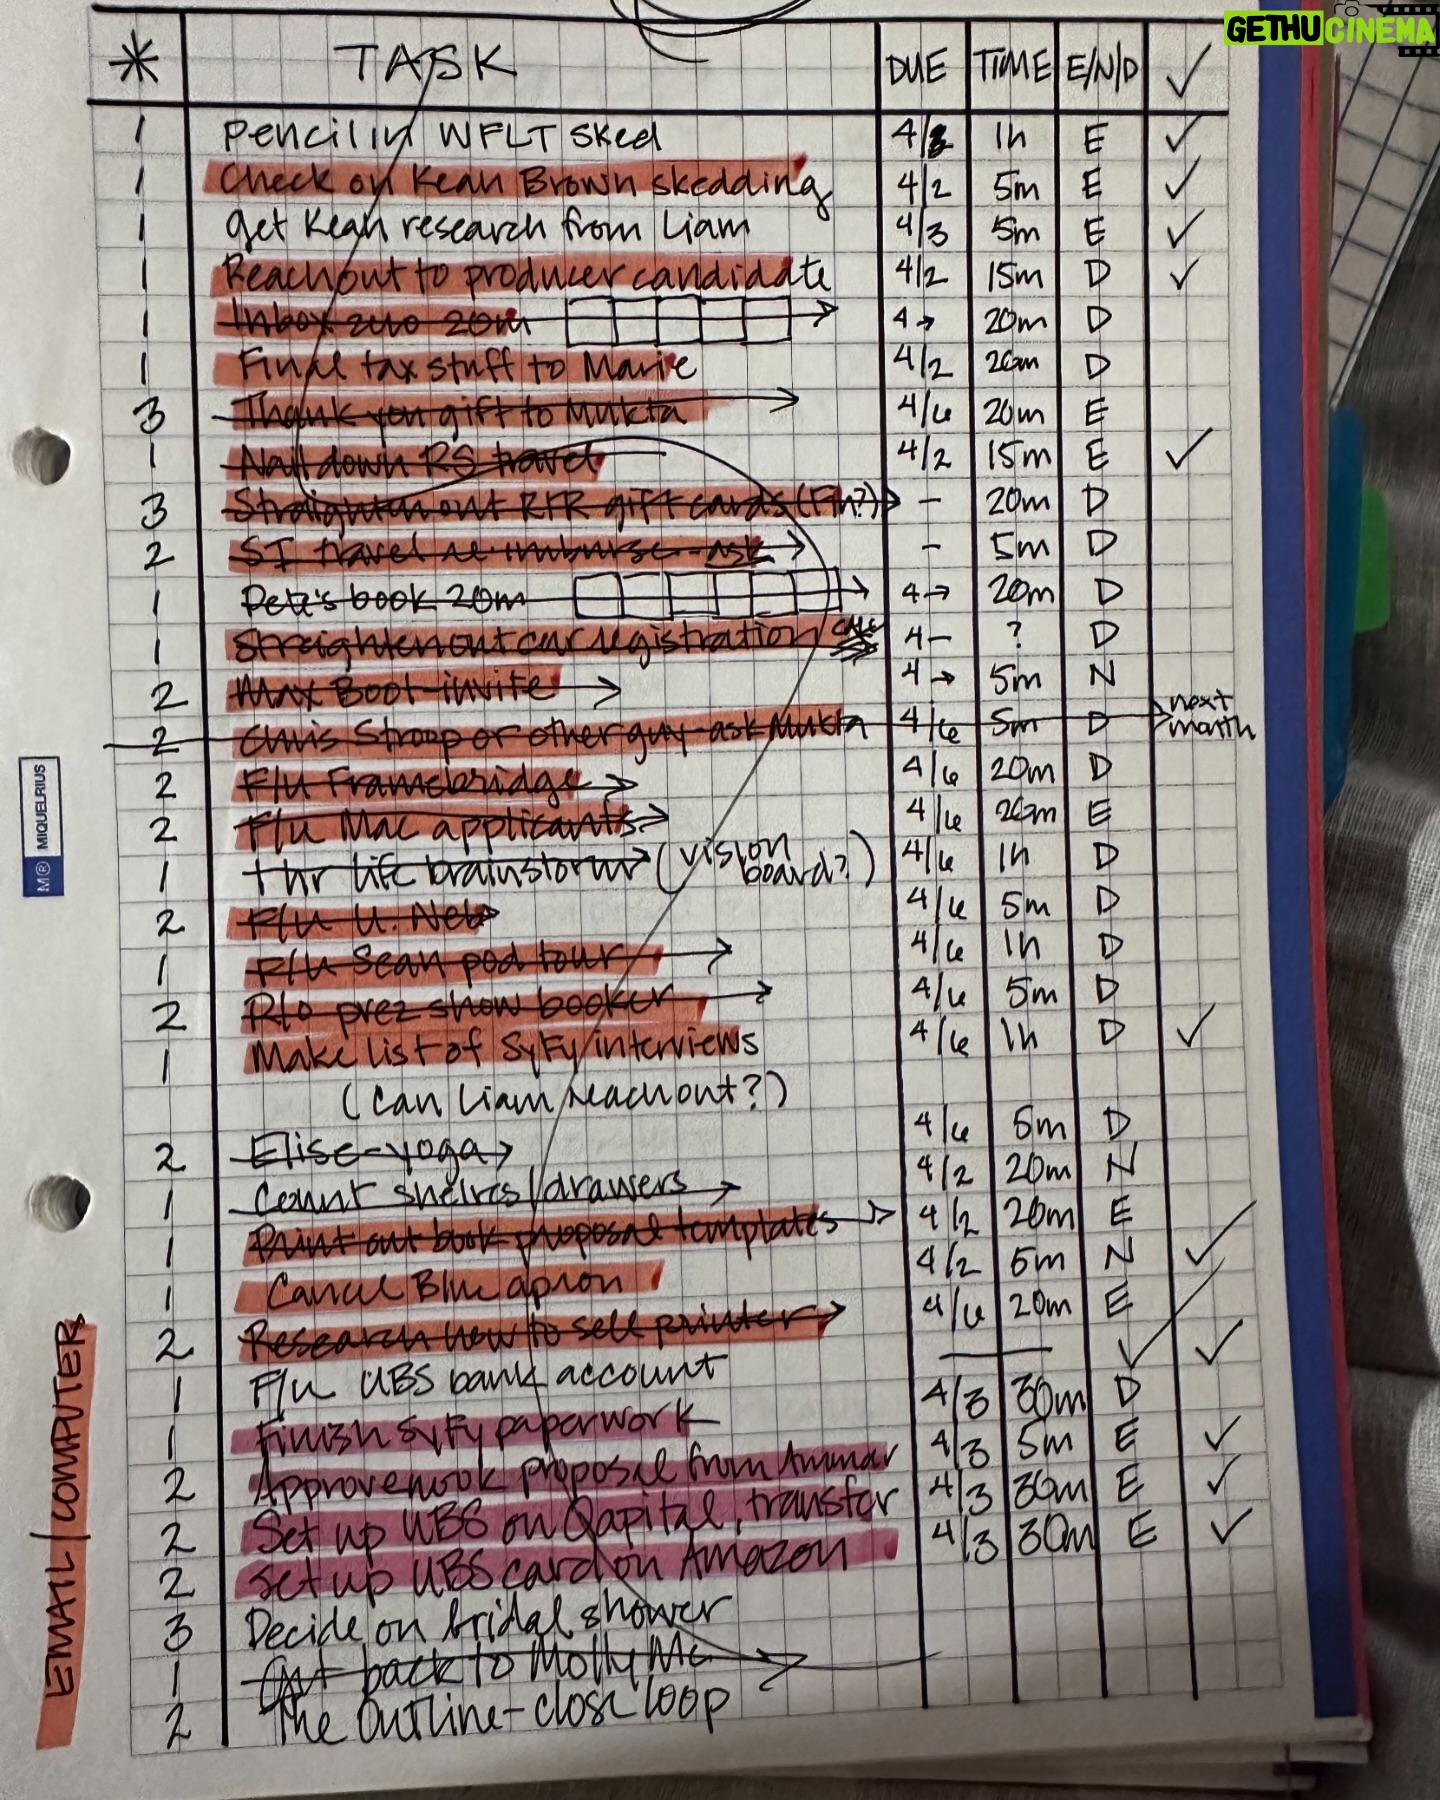 GETHUCINEMA
* TASK DUE TIME E/N/D ✓
1 Pencil in WFLT sked 4/3 1h E ✓
1 Check on Kean Brown skedding 4/2 5m E ✓
1 get Kean research from Liam 4/3 5m E ✓
1 Reach out to producer candidate 4/2 15m D ✓
1 Inbox zero 20m → 4→ 20m D
1 Final tax stuff to Marie 4/2 20m D
3 Thank you gift to Mukta → 4/6 20m E
1 Nail down RS travel 4/2 15m E ✓
3 Straighten out RFR gift cards (Fin?) → – 20m D
2 SI travel re-imburse-ask → – 5m D
1 Pete's book 20m → 4→ 20m D
1 Straighten out car registration 4– ? D
2 Max Boot-invite → 4→ 5m N
2 Chris Stroop or other guy-ask Mukta 4/6 5m D → next month
2 F/u Framebridge → 4/6 20m D
2 F/u Mac applicants → 4/6 20m E
1 1 hr life brainstorm → (vision board?) 4/6 1h D
2 F/u U. Neb → 4/6 5m D
1 F/u Sean pod tour → 4/6 1h D
2 R/o prez show booker → 4/6 5m D
1 Make list of SyFy interviews 4/6 1h D ✓
(Can Liam reach out?)
2 Elise-yoga → 4/6 5m D
1 Count shelves/drawers → 4/2 20m N
1 Print out book proposal templates → 4/2 20m E
1 Cancel Blue apron 4/2 5m N ✓
2 Research how to sell printer → 4/6 20m E
1 F/u UBS bank account — ✓ ✓
1 Finish SyFy paperwork 4/3 30m D
2 Approve nook proposal from Ammar 4/3 5m E ✓
2 Set up UBS on Qapital, transfer 4/3 30m E ✓
2 Set up UBS card on Amazon 4/3 30m E ✓
3 Decide on bridal shower
1 Get back to Molly Mc →
2 The Outline-close loop
EMAIL/COMPUTER
M® MIQUELRIUS